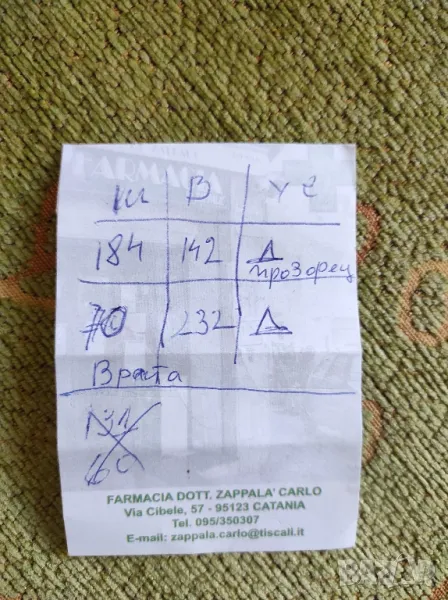 FARMACIA
Ш В
184 142 Д
прозорец
70 232 Д
Врата
FARMACIA DOTT. ZAPPALA' CARLO
Via Cibele, 57 - 95123 CATANIA
Tel. 095/350307
E-mail: zappala.carlo@tiscali.it